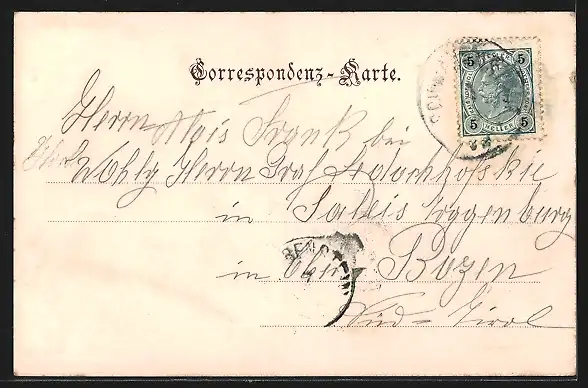 Correspondenz-Karte.
5 5
5 5
HELLER
Herrn Alois Frank bei
Wohlg Herrn Graf
in Palais Eggenburg
in Ober Bozen
Süd-Tirol